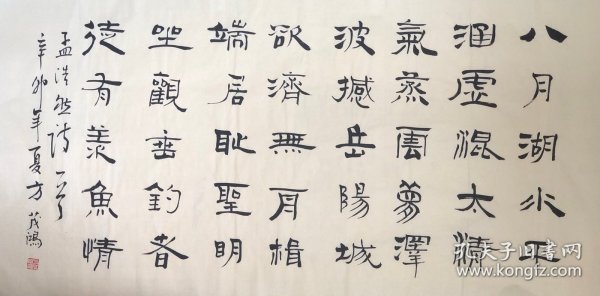 八月湖水平
涵虚混太清
氣蒸雲夢澤
波撼岳陽城
欲濟無舟楫
端居恥聖明
坐觀垂釣者
徒有羨魚情
孟浩然詩一首
辛卯年夏方茂鴻
孔夫子旧书网
www.kongfz.com